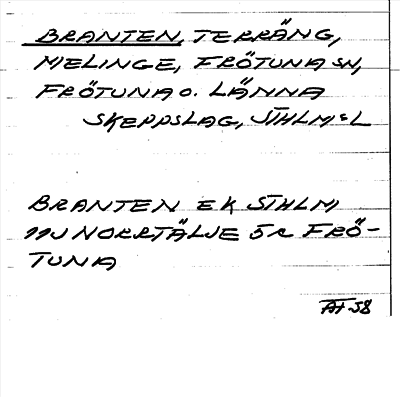 BRANTEN, TERRÄNG,
MELINGE, FRÖTUNA SN,
FRÖTUNA O. LÄNNA
SKEPPSLAG, STHLMS L
BRANTEN EK STHLM
11J NORRTÄLJE 5R FRÖ-
TUNA